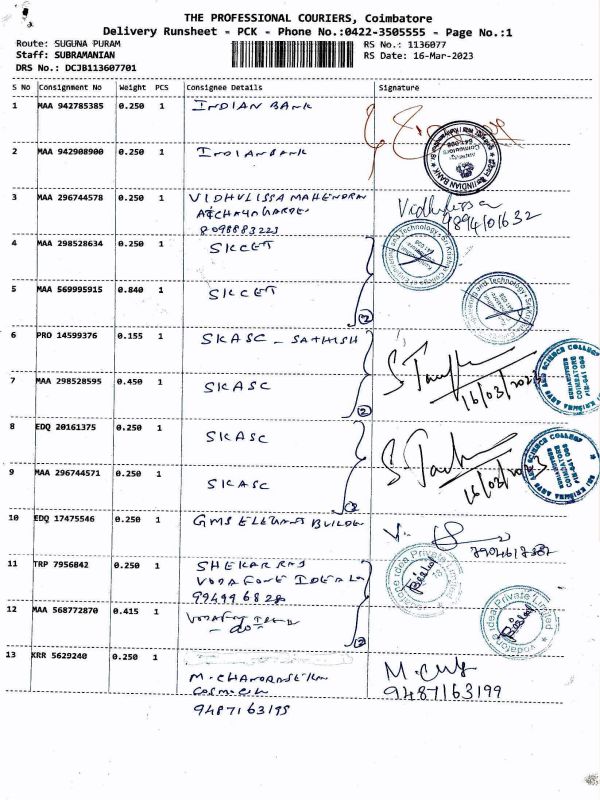 THE PROFESSIONAL COURIERS, Coimbatore
Delivery Runsheet - PCK - Phone No.:0422-3505555 - Page No.:1
Route: SUGUNA PURAM
Staff: SUBRAMANIAN
DRS No.: DCJB113607701
RS No.: 1136077
RS Date: 16-Mar-2023
S No Consignment No Weight PCS Consignee Details Signature
1 MAA 942785385 0.250 1 INDIAN BANK
2 MAA 942908900 0.250 1 INDIAN BANK
INDIAN BANK
3 MAA 296744578 0.250 1 VIDHULISSA MAHENDRAN
8098883223
Vidhulissa
9894101632
4 MAA 298528634 0.250 1 SKCET
5 MAA 569995915 0.840 1 SKCET
(2)
6 PRO 14599376 0.155 1 SKASC - SATHISH
16/03/2023
7 MAA 298528595 0.450 1 SKASC
(2)
8 EDQ 20161375 0.250 1 SKASC
16/03/2023
9 MAA 296744571 0.250 1 SKASC
(2)
10 EDQ 17475546 0.250 1 GMS ELEGANT BUILDER
11 TRP 7956842 0.250 1 SHEKAR RAJ
VODAFONE IDEA LA
99499 6828
Vodafone Idea Private Limited
12 MAA 568772870 0.415 1
- do -
(2)
Vodafone Idea Private Limited
13 KRR 5629240 0.250 1
M. CHANDRASEKAR
9487163199
9487163199